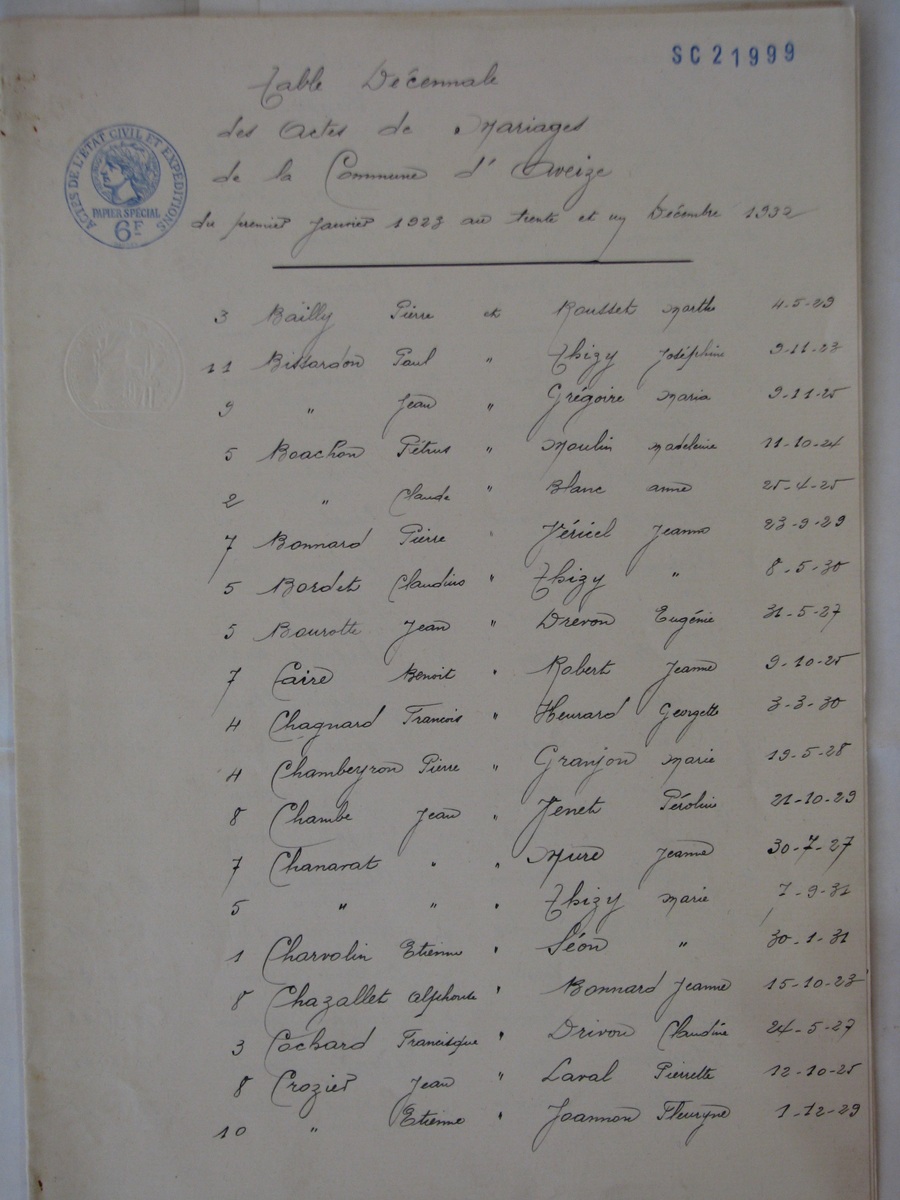 SC21999
Table Décennale
des Actes de Mariages
de la Commune d'Aveize
du premier Janvier 1923 au trente et un Décembre 1932
ACTES DE L'ÉTAT CIVIL ET EXPÉDITIONS
PAPIER SPÉCIAL
6F
3 Bailly Pierre et Rousset Marthe 4-5-29
11 Bissardon Paul " Thizy Joséphine 9-11-23
9 " Jean " Grégoire Maria 9-11-25
5 Boachon Pétrus " Moulin Madeleine 11-10-24
2 " Claude " Blanc Anne 25-4-25
7 Bonnard Pierre " Véricel Jeanne 23-9-29
5 Bordet Claudius " Thizy " 8-5-30
5 Bourotte Jean " Drevon Eugénie 31-5-27
7 Caire Benoit " Robert Jeanne 9-10-25
4 Chagnard Francois " Heurard Georgette 3-3-30
4 Chambeyron Pierre " Granjon Marie 19-5-28
8 Chambe Jean " Venet Péroline 21-10-29
7 Chanavat " " Mure Jeanne 30-7-27
5 " " " Thizy Marie 7-9-31
1 Charvolin Etienne " Séon " 30-1-31
8 Chazallet Alphonse " Bonnard Jeanne 15-10-23
3 Cochard Francisque " Drivon Claudine 24-5-27
8 Crozier Jean " Laval Pierrette 12-10-25
10 " Etienne " Joannon Fleuryne 1-12-29